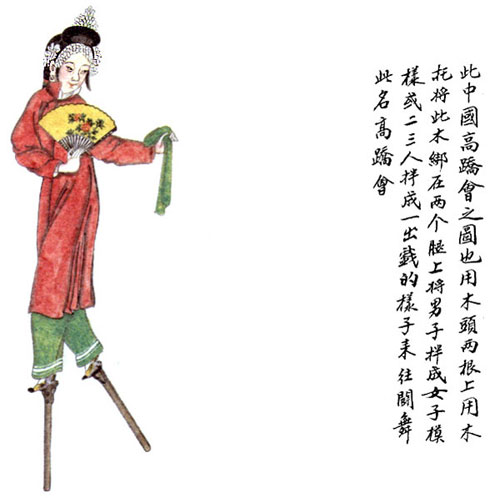 此中國高蹻會之圖也用木頭两根上用木
托将此木綁在两个腿上将男子拌成女子模
樣或二三人拌成一出戯的樣子来往鬧舞
此名高蹻會